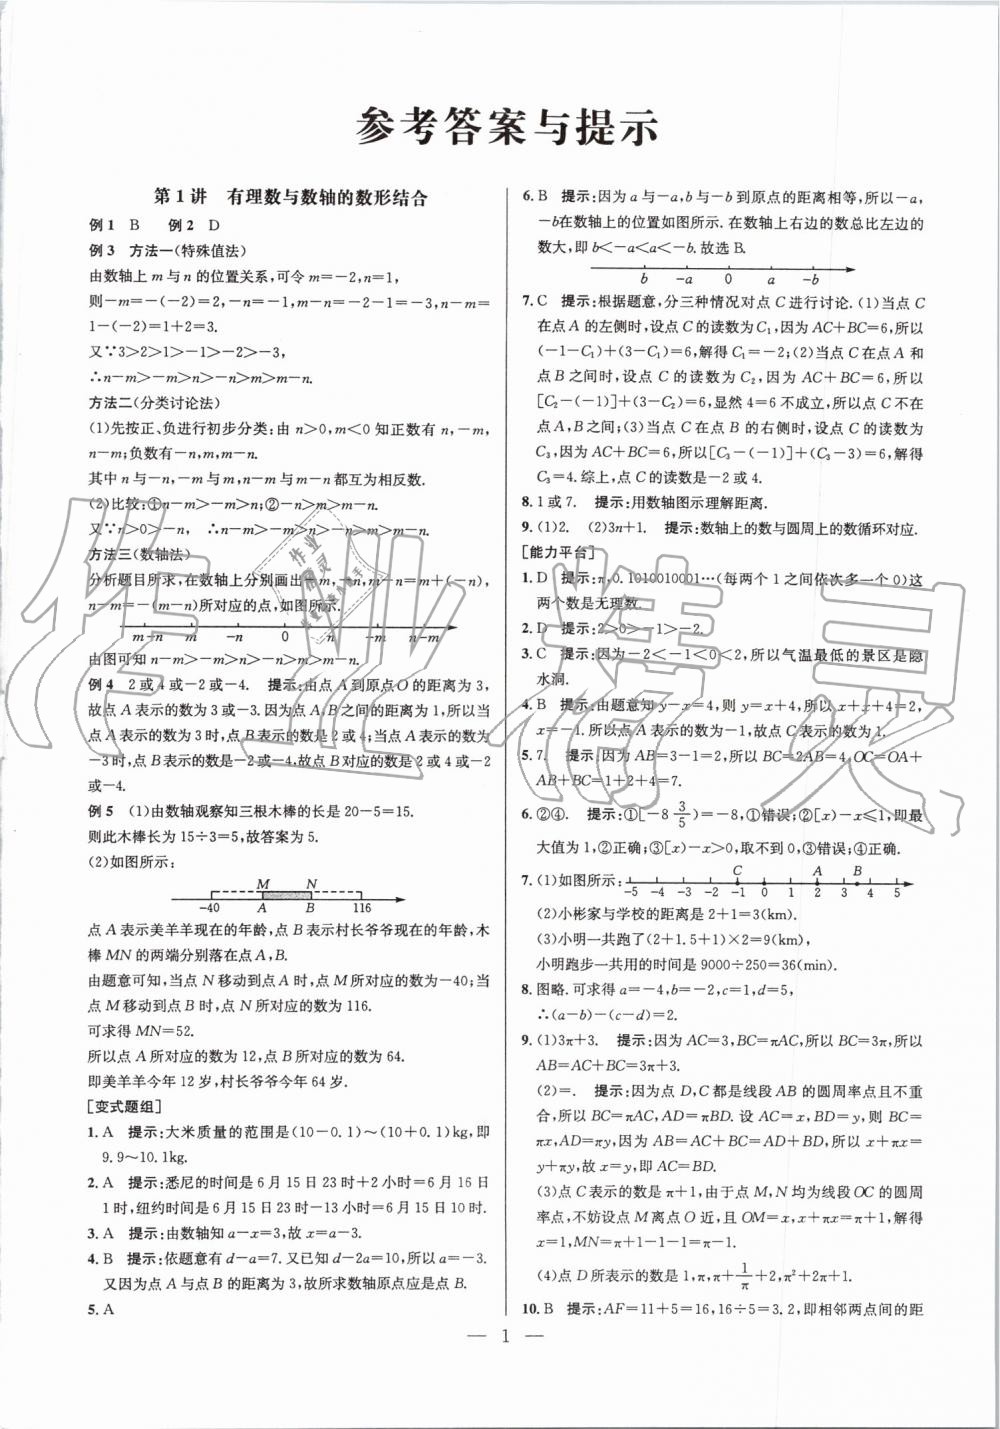 参考答案与提示
第1讲 有理数与数轴的数形结合
例1 B 例2 D
例3 方法一(特殊值法)
由数轴上m与n的位置关系,可令m=-2,n=1,
则-m=-(-2)=2,-n=-1,m-n=-2-1=-3,n-m=
1-(-2)=1+2=3.
又∵3>2>1>-1>-2>-3,
∴n-m>-m>n>-n>m>m-n.
方法二(分类讨论法)
(1)先按正、负进行初步分类:由n>0,m<0知正数有n,-m,
n-m;负数有-n,m,m-n.
其中n与-n,-m与m,n-m与m-n都互为相反数.
(2)比较:①n-m>-m>n;②-n>m>m-n.
又∵n>0>-n, ∴n-m>-m>n>-n>m>m-n.
方法三(数轴法)
分析题目所求,在数轴上分别画出-m,-n,m-n=m+(-n),
n-m=n+(-m)所对应的点,如图所示.
m-n m -n 0 n -m n-m
由图可知n-m>-m>n>-n>m>m-n.
例4 2或4或-2或-4. 提示:由点A到原点O的距离为3,
故点A表示的数为3或-3.因为点A,B之间的距离为1,所以当
点A表示的数为3时,点B表示的数是2或4;当点A表示的数为
-3时,点B表示的数是-2或-4.故点B对应的数是2或4或-2
或-4.
例5 (1)由数轴观察知三根木棒的长是20-5=15.
则此木棒长为15÷3=5,故答案为5.
(2)如图所示:
M N
-40 A B 116
点A表示美羊羊现在的年龄,点B表示村长爷爷现在的年龄,木
棒MN的两端分别落在点A,B.
由题意可知,当点N移动到点A时,点M所对应的数为-40;当
点M移动到点B时,点N所对应的数为116.
可求得MN=52.
所以点A所对应的数为12,点B所对应的数为64.
即美羊羊今年12岁,村长爷爷今年64岁.
[变式题组]
1. A 提示:大米质量的范围是(10-0.1)~(10+0.1)kg,即
9.9~10.1kg.
2. A 提示:悉尼的时间是6月15日23时+2小时=6月16日
1时,纽约时间是6月15日23时-13小时=6月15日10时.
3. A 提示:由数轴知a-x=3,故x=a-3.
4. B 提示:依题意有d-a=7.又已知d-2a=10,所以a=-3.
又因为点A与点B的距离为3,故所求数轴原点应是点B.
5. A
6. B 提示:因为a与-a,b与-b到原点的距离相等,所以-a,
-b在数轴上的位置如图所示.在数轴上右边的数总比左边的
数大,即b<-a<a<-b.故选B.
b -a 0 a -b
7. C 提示:根据题意,分三种情况对点C进行讨论.(1)当点C
在点A的左侧时,设点C的读数为C₁,因为AC+BC=6,所以
(-1-C₁)+(3-C₁)=6,解得C₁=-2;(2)当点C在点A和
点B之间时,设点C的读数为C₂,因为AC+BC=6,所以
[C₂-(-1)]+(3-C₂)=6,显然4=6不成立,所以点C不在
点A,B之间;(3)当点C在点B的右侧时,设点C的读数为
C₃,因为AC+BC=6,所以[C₃-(-1)]+(C₃-3)=6,解得
C₃=4.综上,点C的读数是-2或4.
8. 1或7. 提示:用数轴图示理解距离.
9. (1)2. (2)3n+1. 提示:数轴上的数与圆周上的数循环对应.
[能力平台]
1. D 提示:π,0.1010010001…(每两个1之间依次多一个0)这
两个数是无理数.
2. D 提示:2>0>-1>-2.
3. C 提示:因为-2<-1<0<2,所以气温最低的景区是隐
水洞.
4. B 提示:由题意知y-x=4,则y=x+4,所以x+4+x=2,
x=-1.所以点A表示的数为-1,故点C表示的数为1.
5. 7. 提示:因为AB=3-1=2,所以BC=2AB=4,OC=OA+
AB+BC=1+2+4=7.
6. ②④. 提示:①[-8 3/5)=-8,①错误;②[x)-x≤1,即最
大值为1,②正确;③[x)-x>0,取不到0,③错误;④正确.
7. (1)如图所示: C A B
-5 -4 -3 -2 -1 0 1 2 3 4 5
(2)小彬家与学校的距离是2+1=3(km).
(3)小明一共跑了(2+1.5+1)×2=9(km),
小明跑步一共用的时间是9000÷250=36(min).
8. 图略.可求得a=-4,b=-2,c=1,d=5,
∴(a-b)-(c-d)=2.
9. (1)3π+3. 提示:因为AC=3,BC=πAC,所以BC=3π,所以
AB=AC+BC=3π+3.
(2)=. 提示:因为点D,C都是线段AB的圆周率点且不重
合,所以BC=πAC,AD=πBD.设AC=x,BD=y,则BC=
πx,AD=πy,因为AB=AC+BC=AD+BD,所以x+πx=
y+πy,故x=y,即AC=BD.
(3)点C表示的数是π+1,由于点M,N均为线段OC的圆周
率点,不妨设点M离点O近,且OM=x,x+πx=π+1,解得
x=1,MN=π+1-1-1=π-1.
(4)点D所表示的数是1,π,π+1/π+2,π²+2π+1.
10. B 提示:AF=11+5=16,16÷5=3.2,即相邻两点间的距
— 1 —
作业精灵